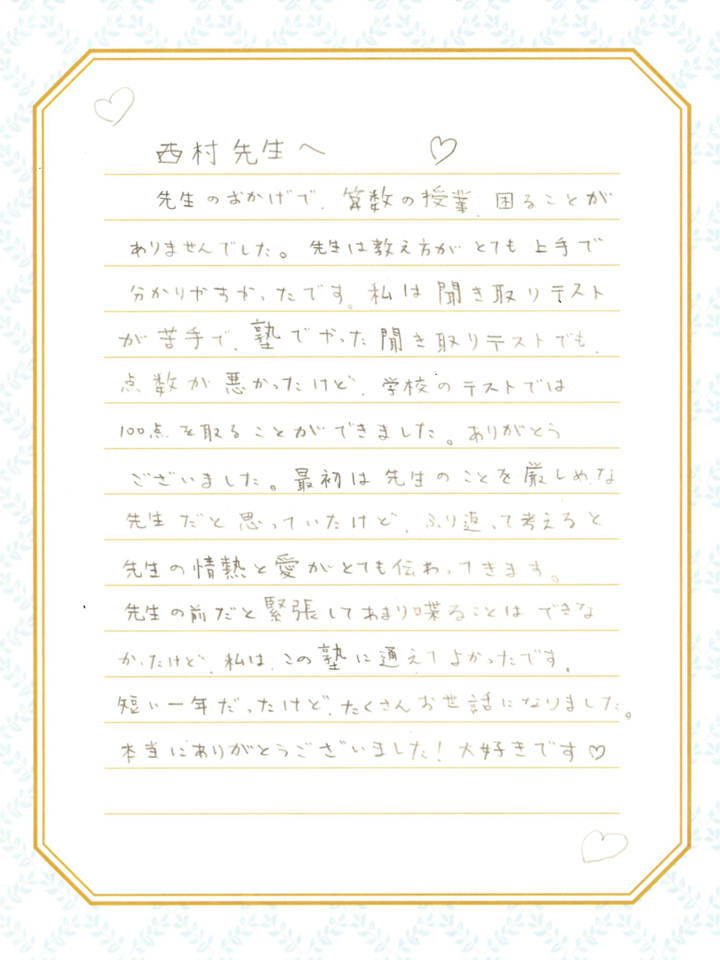 西村先生へ ♡
先生のおかげで、算数の授業、困ることが
ありませんでした。先生は教え方がとても上手で
分かりやすかったです。私は聞き取りテスト
が苦手で、塾でやった聞き取りテストでも、
点数が悪かったけど、学校のテストでは
100点を取ることができました。ありがとう
ございました。最初は先生のことを厳しめな
先生だと思っていたけど、ふり返って考えると
先生の情熱と愛がとても伝わってきます。
先生の前だと緊張してあまり喋ることはできな
かったけど、私は、この塾に通えてよかったです。
短い一年だったけど、たくさんお世話になりました。
本当にありがとうございました!大好きです♡